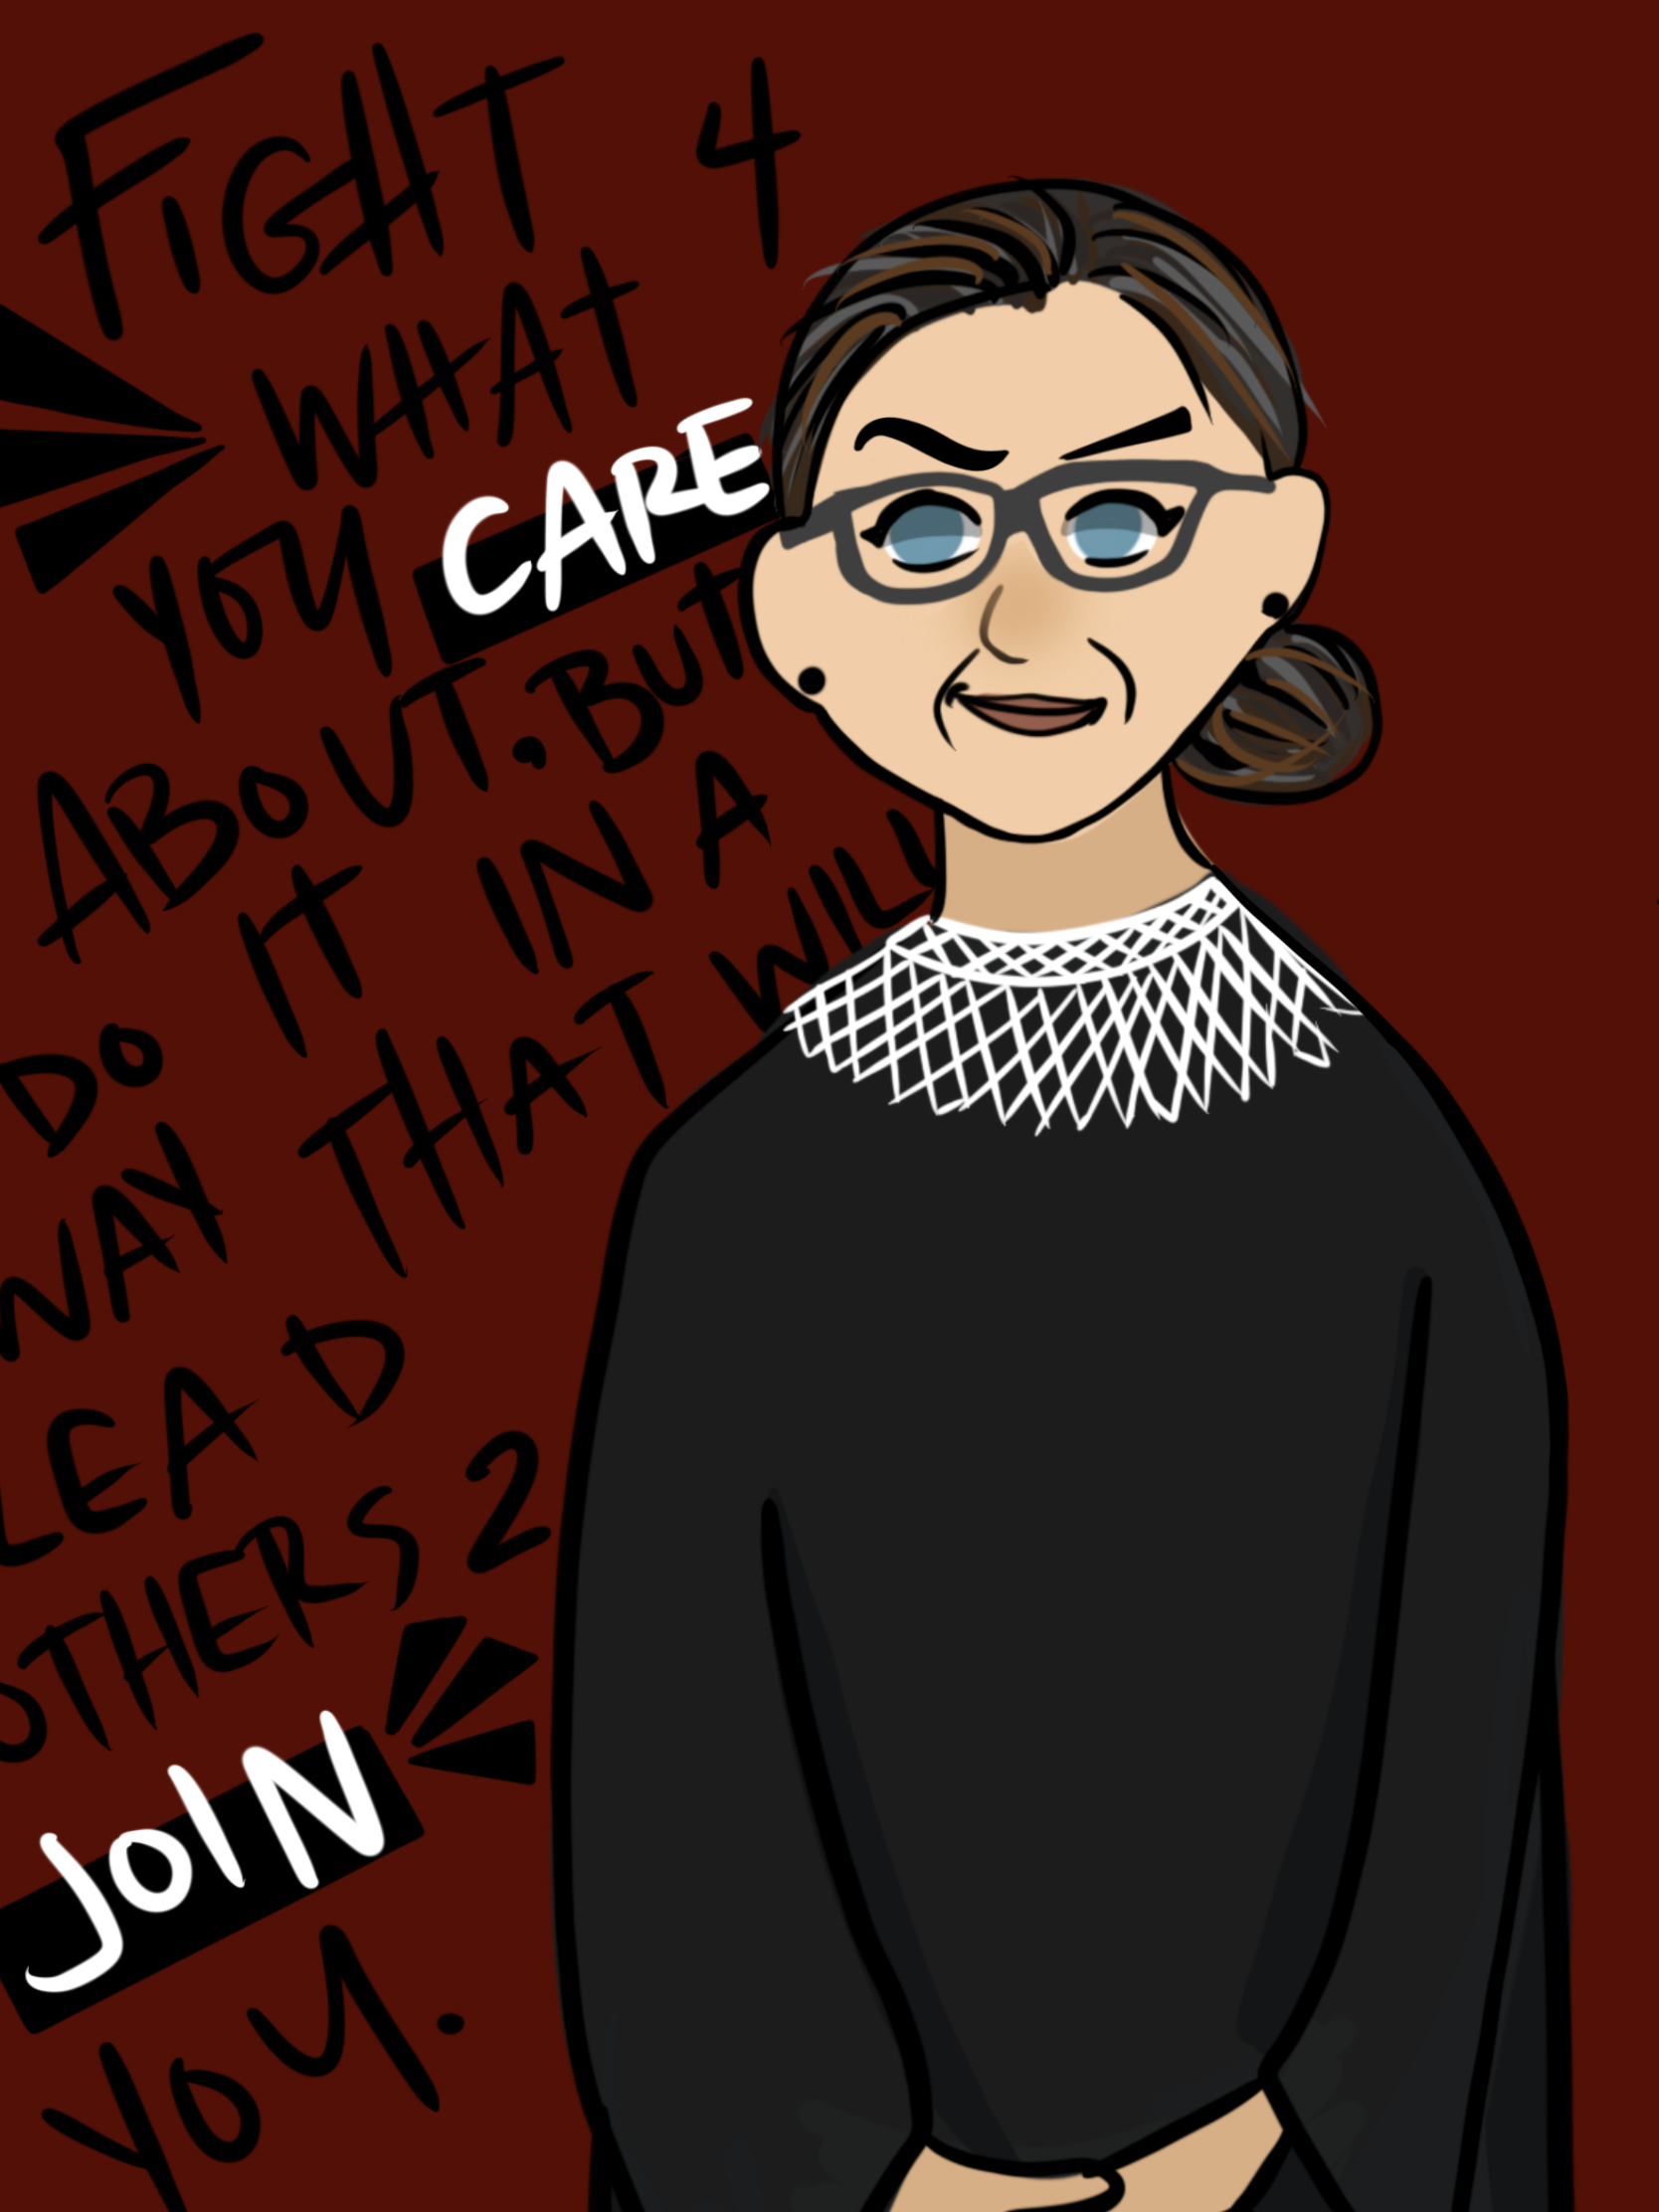 FiGHT 4
WHAT
YOU CARE
ABOUT. BUT
DO IT IN A
WAY THAT WILL
LEAD
OTHERS 2
JOIN
YOU.